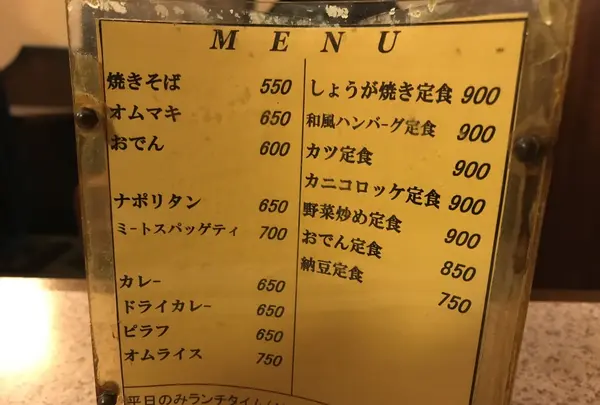 MENU
焼きそば 550
オムマキ 650
おでん 600
ナポリタン 650
ミートスパッゲティ 700
カレー 650
ドライカレー 650
ピラフ 650
オムライス 750
しょうが焼き定食 900
和風ハンバーグ定食 900
カツ定食 900
カニコロッケ定食 900
野菜炒め定食 900
おでん定食 850
納豆定食 750
平日のみランチタイム